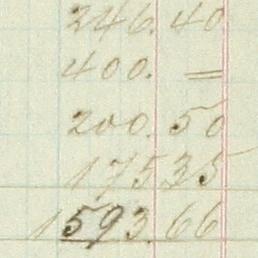 246.40
400. =
200.50
175 35
1593.66